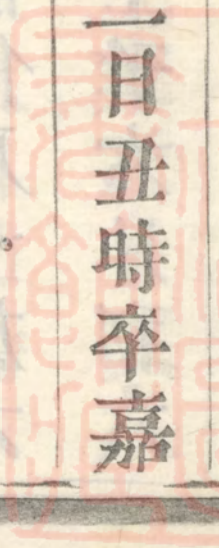 一日丑時卒嘉